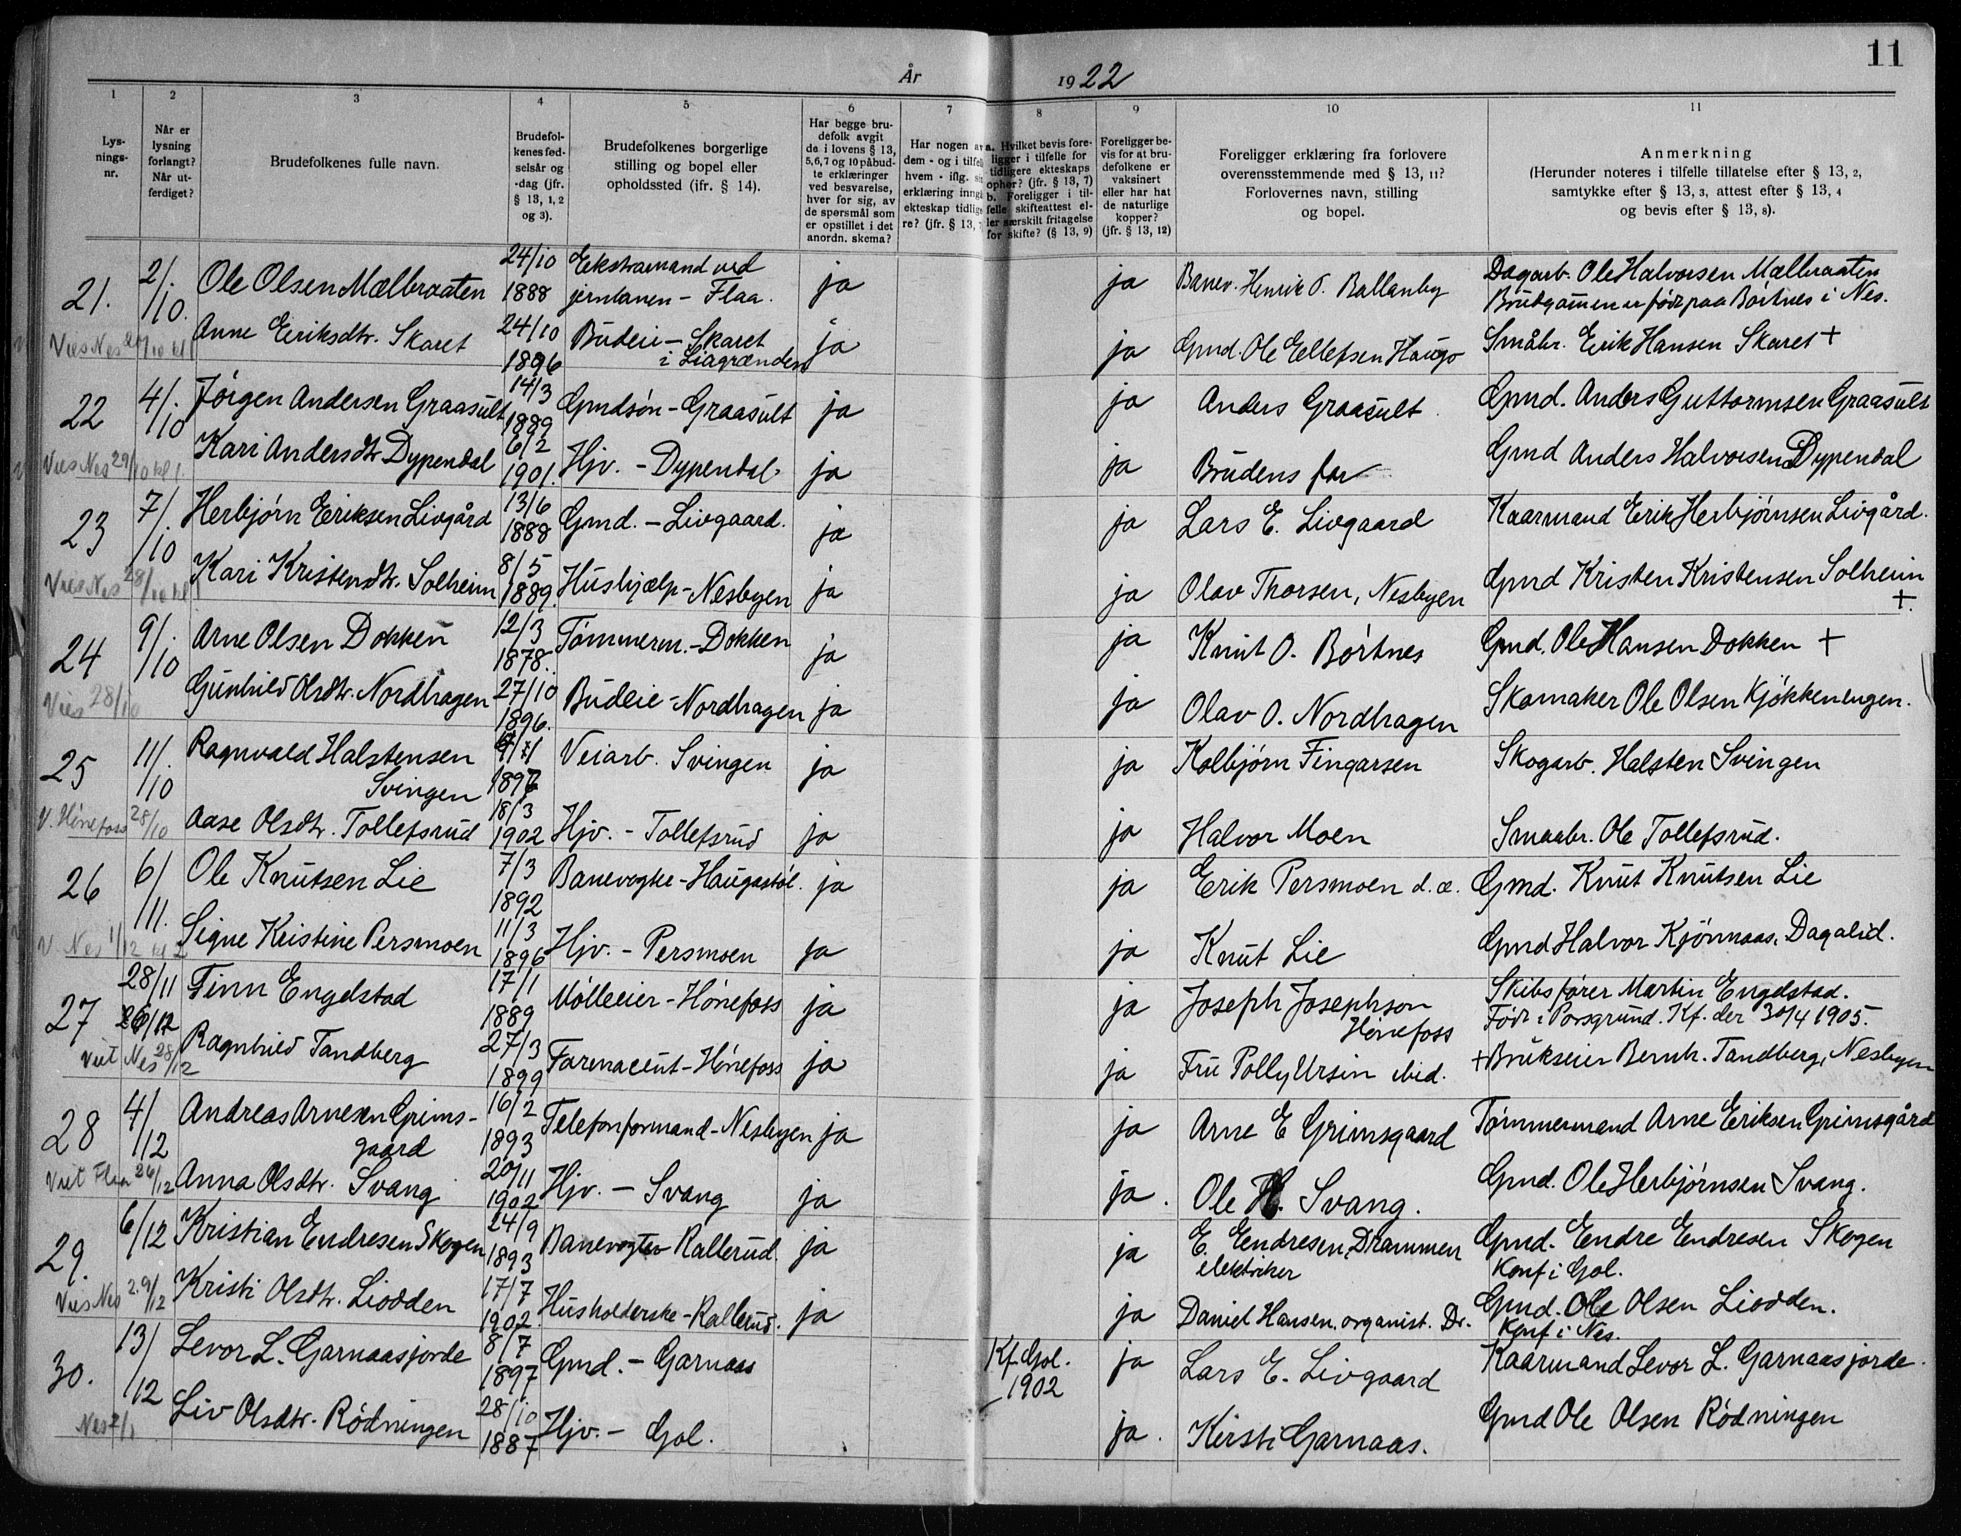 11
År 1922
1 2 3 4 5 6 7 8 9 10 11
Lysningsnr.
Når er lysning forlangt? Når utferdiget?
Brudefolkenes fulle navn.
Brudefolkenes fødselsår og -dag (jfr. § 13, 1, 2 og 3).
Brudefolkenes borgerlige stilling og bopel eller opholdssted (ifr. § 14).
Har begge brudefolk avgit de i lovens § 13, 5,6,7 og 10 påbudte erklæringer ved besvarelse, hver for sig, av de spørsmål som er opstillet i det anordn. skema?
Har nogen av dem - og i tilfelle hvem - iflg. sin erklæring inngått ekteskap tidligere? (jfr. § 13, 7
a. Hvilket bevis foreligger i tilfelle for tidligere ekteskaps ophør? (jfr. § 13, 7) b. Foreligger i tilfelle skifteattest eller særskilt fritagelse for skifte? (§ 13, 9)
Foreligger bevis for at brudefolkene er vaksinert eller har hat de naturlige kopper? (jfr. § 13, 12)
Foreligger erklæring fra forlovere overensstemmende med § 13, 11? Forlovernes navn, stilling og bopel.
Anmerkning (Herunder noteres i tilfelle tillatelse efter § 13, 2, samtykke efter § 13, 3, attest efter § 13, 4 og bevis efter § 13, 8).
21. 2/10. Ole Olsen Mælbraaten 24/10 1888 Ekstramand ved jernbanen - Flaa. ja ja Banev. Henrik O. Ballanby Dagarb. Ole Halvorsen Mælbraaten
Brudgommen er født paa Børtnes i Nes.
Vies Nes Anne Eriksdtr. Skaret 24/10 1896 Budeie - Skaret i Liagrænden ja ja Gmd. Ole Ellefsen Haugo Småbr. Erik Hansen Skaret +
22 4/10 Jørgen Andersen Graasult 14/3 1889 Gmdsøn - Graasult ja ja Anders Graasult Gmd. Anders Guttormsen Graasult
Vies Nes 29/10 kl 1. Kari Andersdtr Dypendal 6/2 1901. Hjv. - Dypendal. ja ja Brudens far Gmd Anders Halvorsen Dypendal
23 7/10 Herbjørn Eriksen Livgård 13/6 1888 Gmd. - Livgaard. ja ja Lars E. Livgaard Kaarmand Erik Herbjørnsen Livgård.
Vies Nes 28/10 kl Kari Kristensdtr. Solheim 8/5 1889. Hushjælp - Nesbyen ja ja Olav Thorsen, Nesbyen Gmd Kristen Kristensen Solheim +.
24 9/10 Arne Olsen Dokken 12/3 1878. Tømmerm. - Dokken ja ja Knut O. Børtnes Gmd. Ole Hansen Dokken +
Vies 28/10 Gunhild Olsdtr. Nordhagen 27/10 1896. Budeie - Nordhagen ja ja Olav O. Nordhagen Skomaker Ole Olsen Kjøkkenengen.
25 11/10 Ragnvald Halstensen Svingen Veiarb. Svingen ja ja Kolbjørn Fingarsen Skogarb. Halsten Svingen
V. Hønefoss 28/10 Aase Olsdtr. Tollefsrud 18/3 1902 Hjv. - Tollefsrud ja ja Halvor Moen Smaabr. Ole Tollefsrud.
26 6/11. Ole Knutsen Lie 7/3 1892 Banevogte - Haugastøl. ja ja Erik Persmoen d. æ. Gmd. Knut Knutsen Lie
V. Nes 1/12 kl 2 Signe Kristine Persmoen 11/3 1896 Hjv. - Persmoen ja ja Knut Lie Gmd Halvor Kjønnaas, Dagalid.
27 28/11 Finn Engelstad 17/1 1889 Mølleeier - Hønefoss ja ja Joseph Josephson Hønefoss Skibsfører Martin Engelstad.
Født i Porsgrund. Kf. der 30/4 1905.
Viet Nes 28/12 Ragnhild Tandberg 27/3 1899 Farmaceut - Hønefoss ja ja Fru Polly Ursin ibid. + Brukseier Bernh. Tandberg, Nesbyen
28 4/12 Andreas Arnesen Grimsgaard 16/2 1893 Telefonformand - Nesbyen ja ja Arne E Grimsgaard Tømmermand Arne Eriksen Grimsgård
Viet Flaa 26/12 Anna Olsdtr. Svang 20/11 1902 Hjv. - Svang ja ja. Ole H. Svang. Gmd. Ole Herbjørnsen Svang.
29. 6/12 Kristian Endresen Skogen 24/9 1893 Banevogter Rallerud. ja ja E. Endresen, Drammen elektriker Gmd. Endre Endresen Skogen
Konf i Gol.
Vies Nes 29/12 Kristi Olsdtr. Liodden 17/7 1902. Husholderske - Rallerud. ja ja Daniel Hansen, organist. Dr. Gmd. Ole Olsen Liodden.
Konf i Nes.
30. 13/12 Levor L. Garnaasjorde 8/7 1897 Gmd. - Garnaas Kf. Gol. 1902 ja Lars E. Livgaard Kaarmand Levor L. Garnaasjorde.
Nes 2/1 Liv Olsdtr. Rødningen 28/10 1887 Hjv. - Gol. ja. Kirsti Garnaas. Gmd Ole Olsen Rødningen